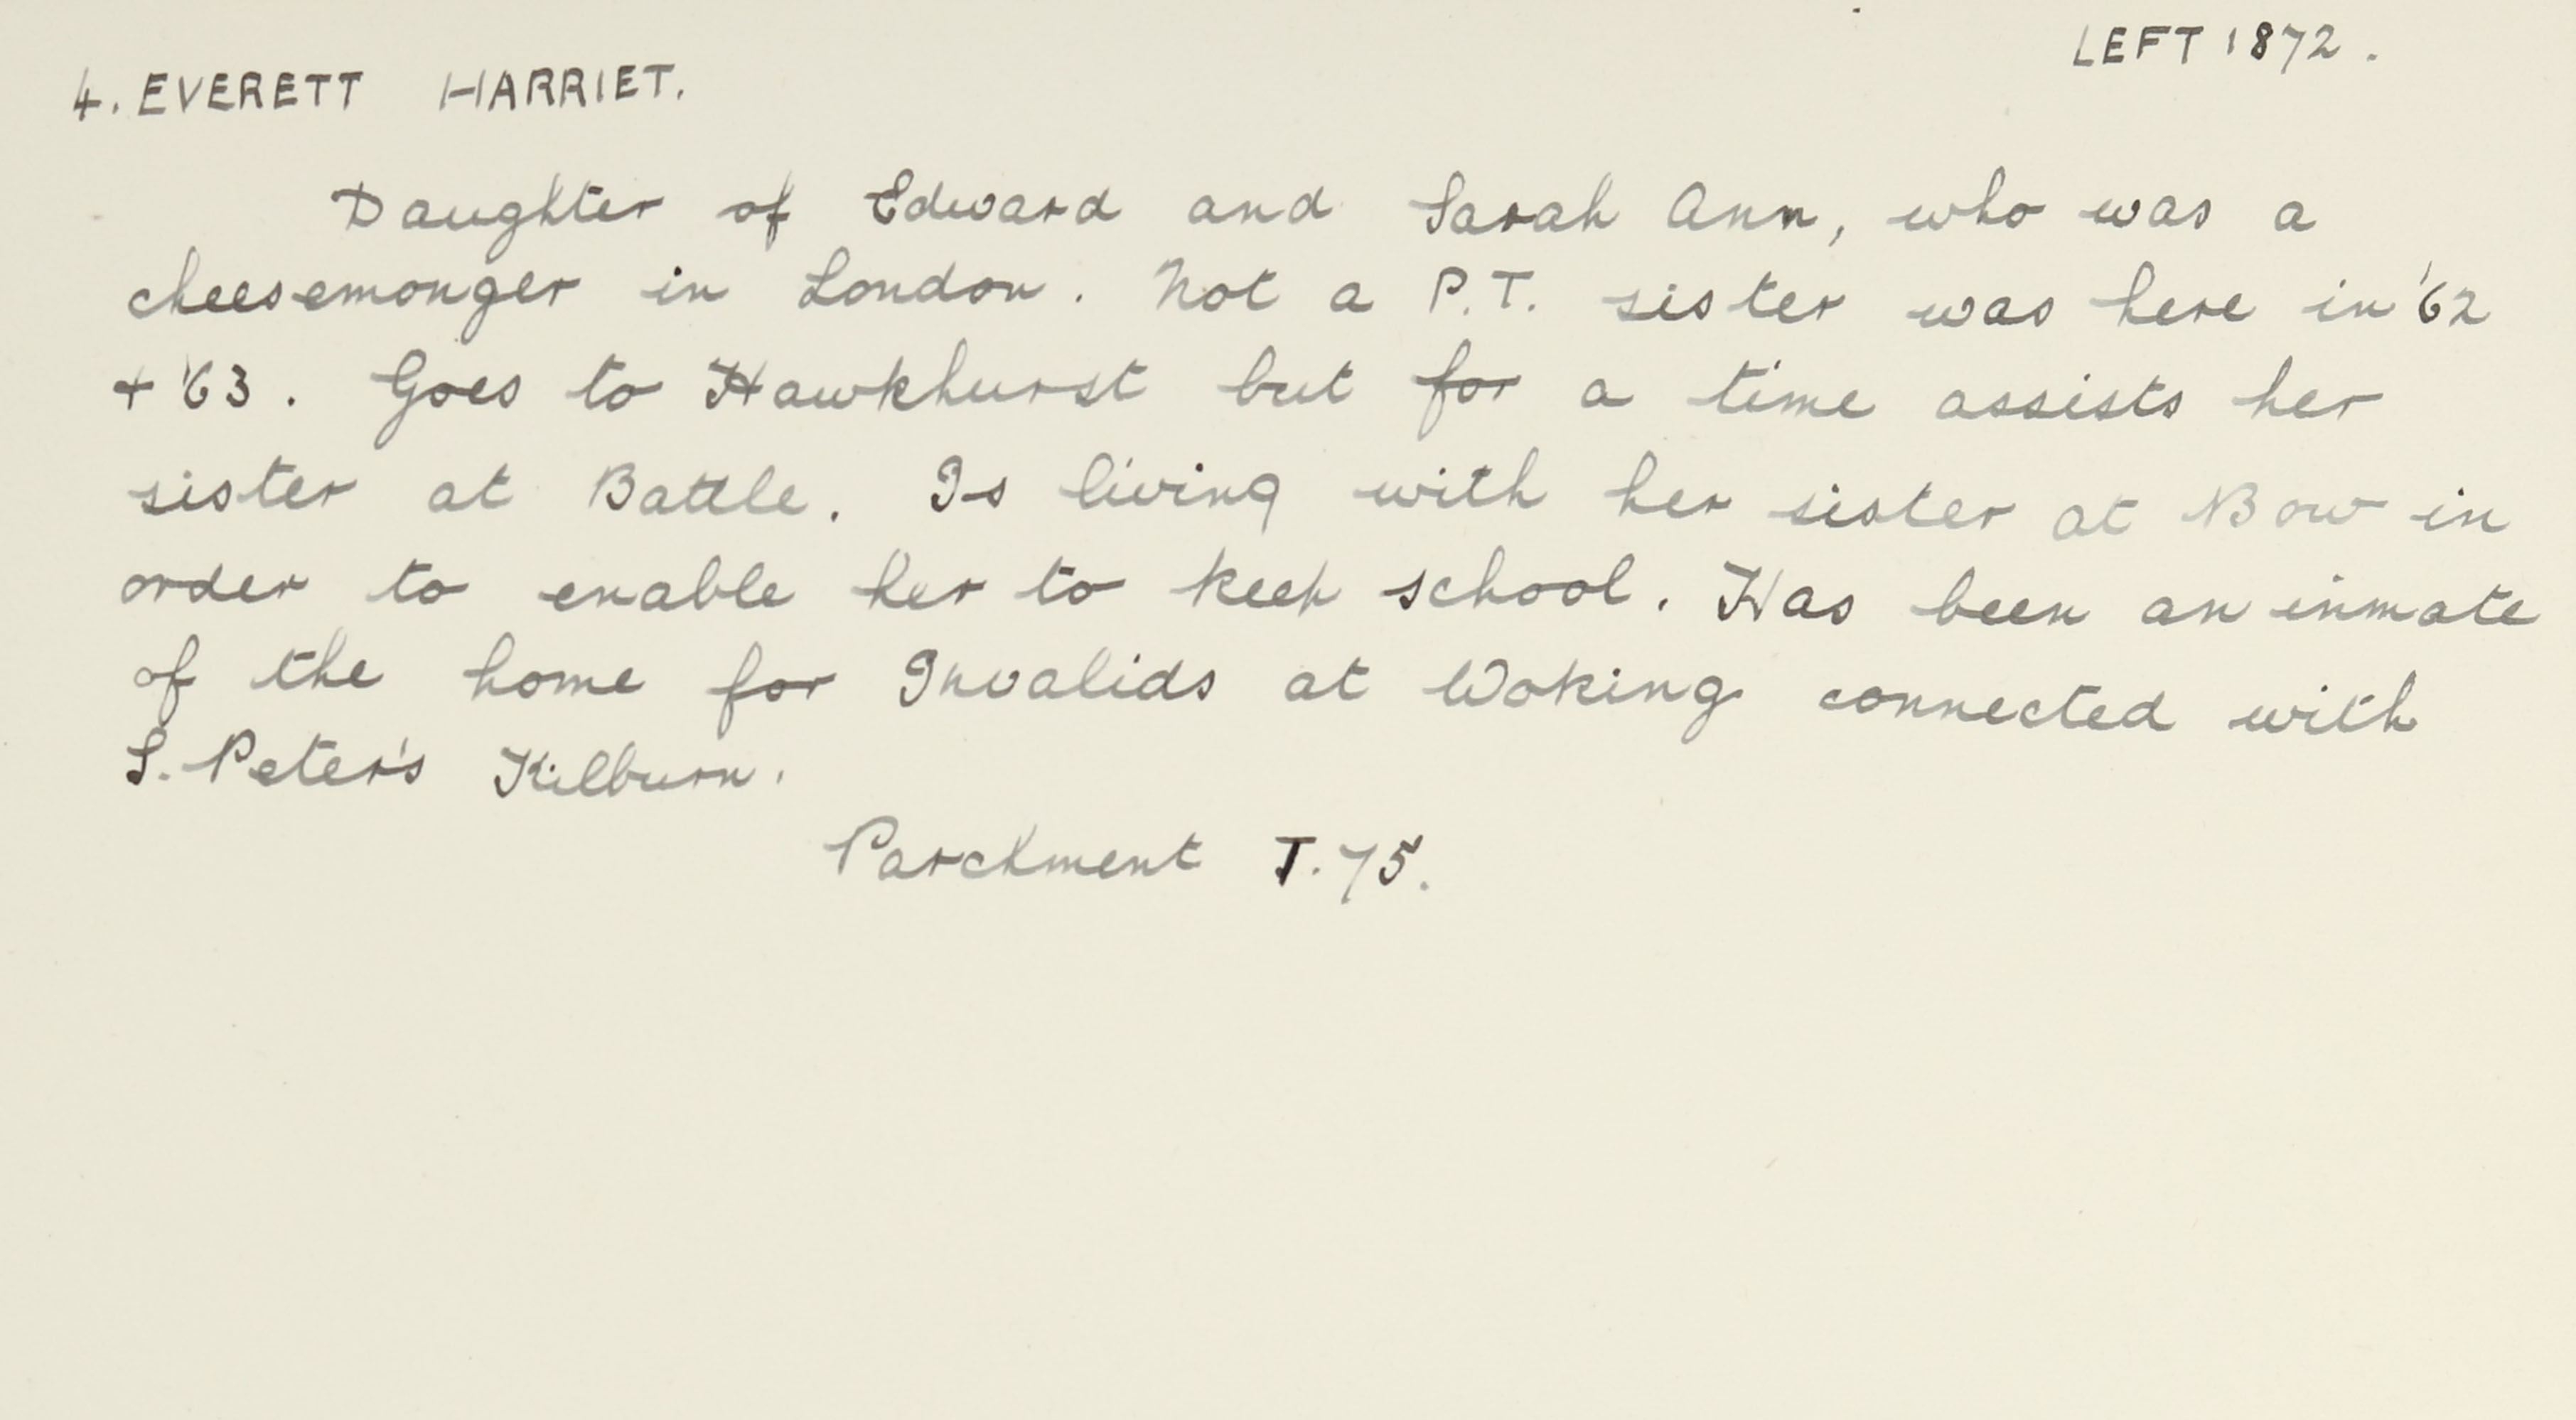 LEFT 1872.
4. EVERETT HARRIET.
Daughter of Edward and Sarah Ann, who was a
cheesemonger in London. Not a P.T. sister was here in '62
+ '63. Goes to Hawkhurst but for a time assists her
sister at Battle. Is living with her sister at Bow in
order to enable her to keep school. Has been an inmate
of the home for Invalids at Woking connected with
S. Peter's Kilburn.
Parchment T. 75.